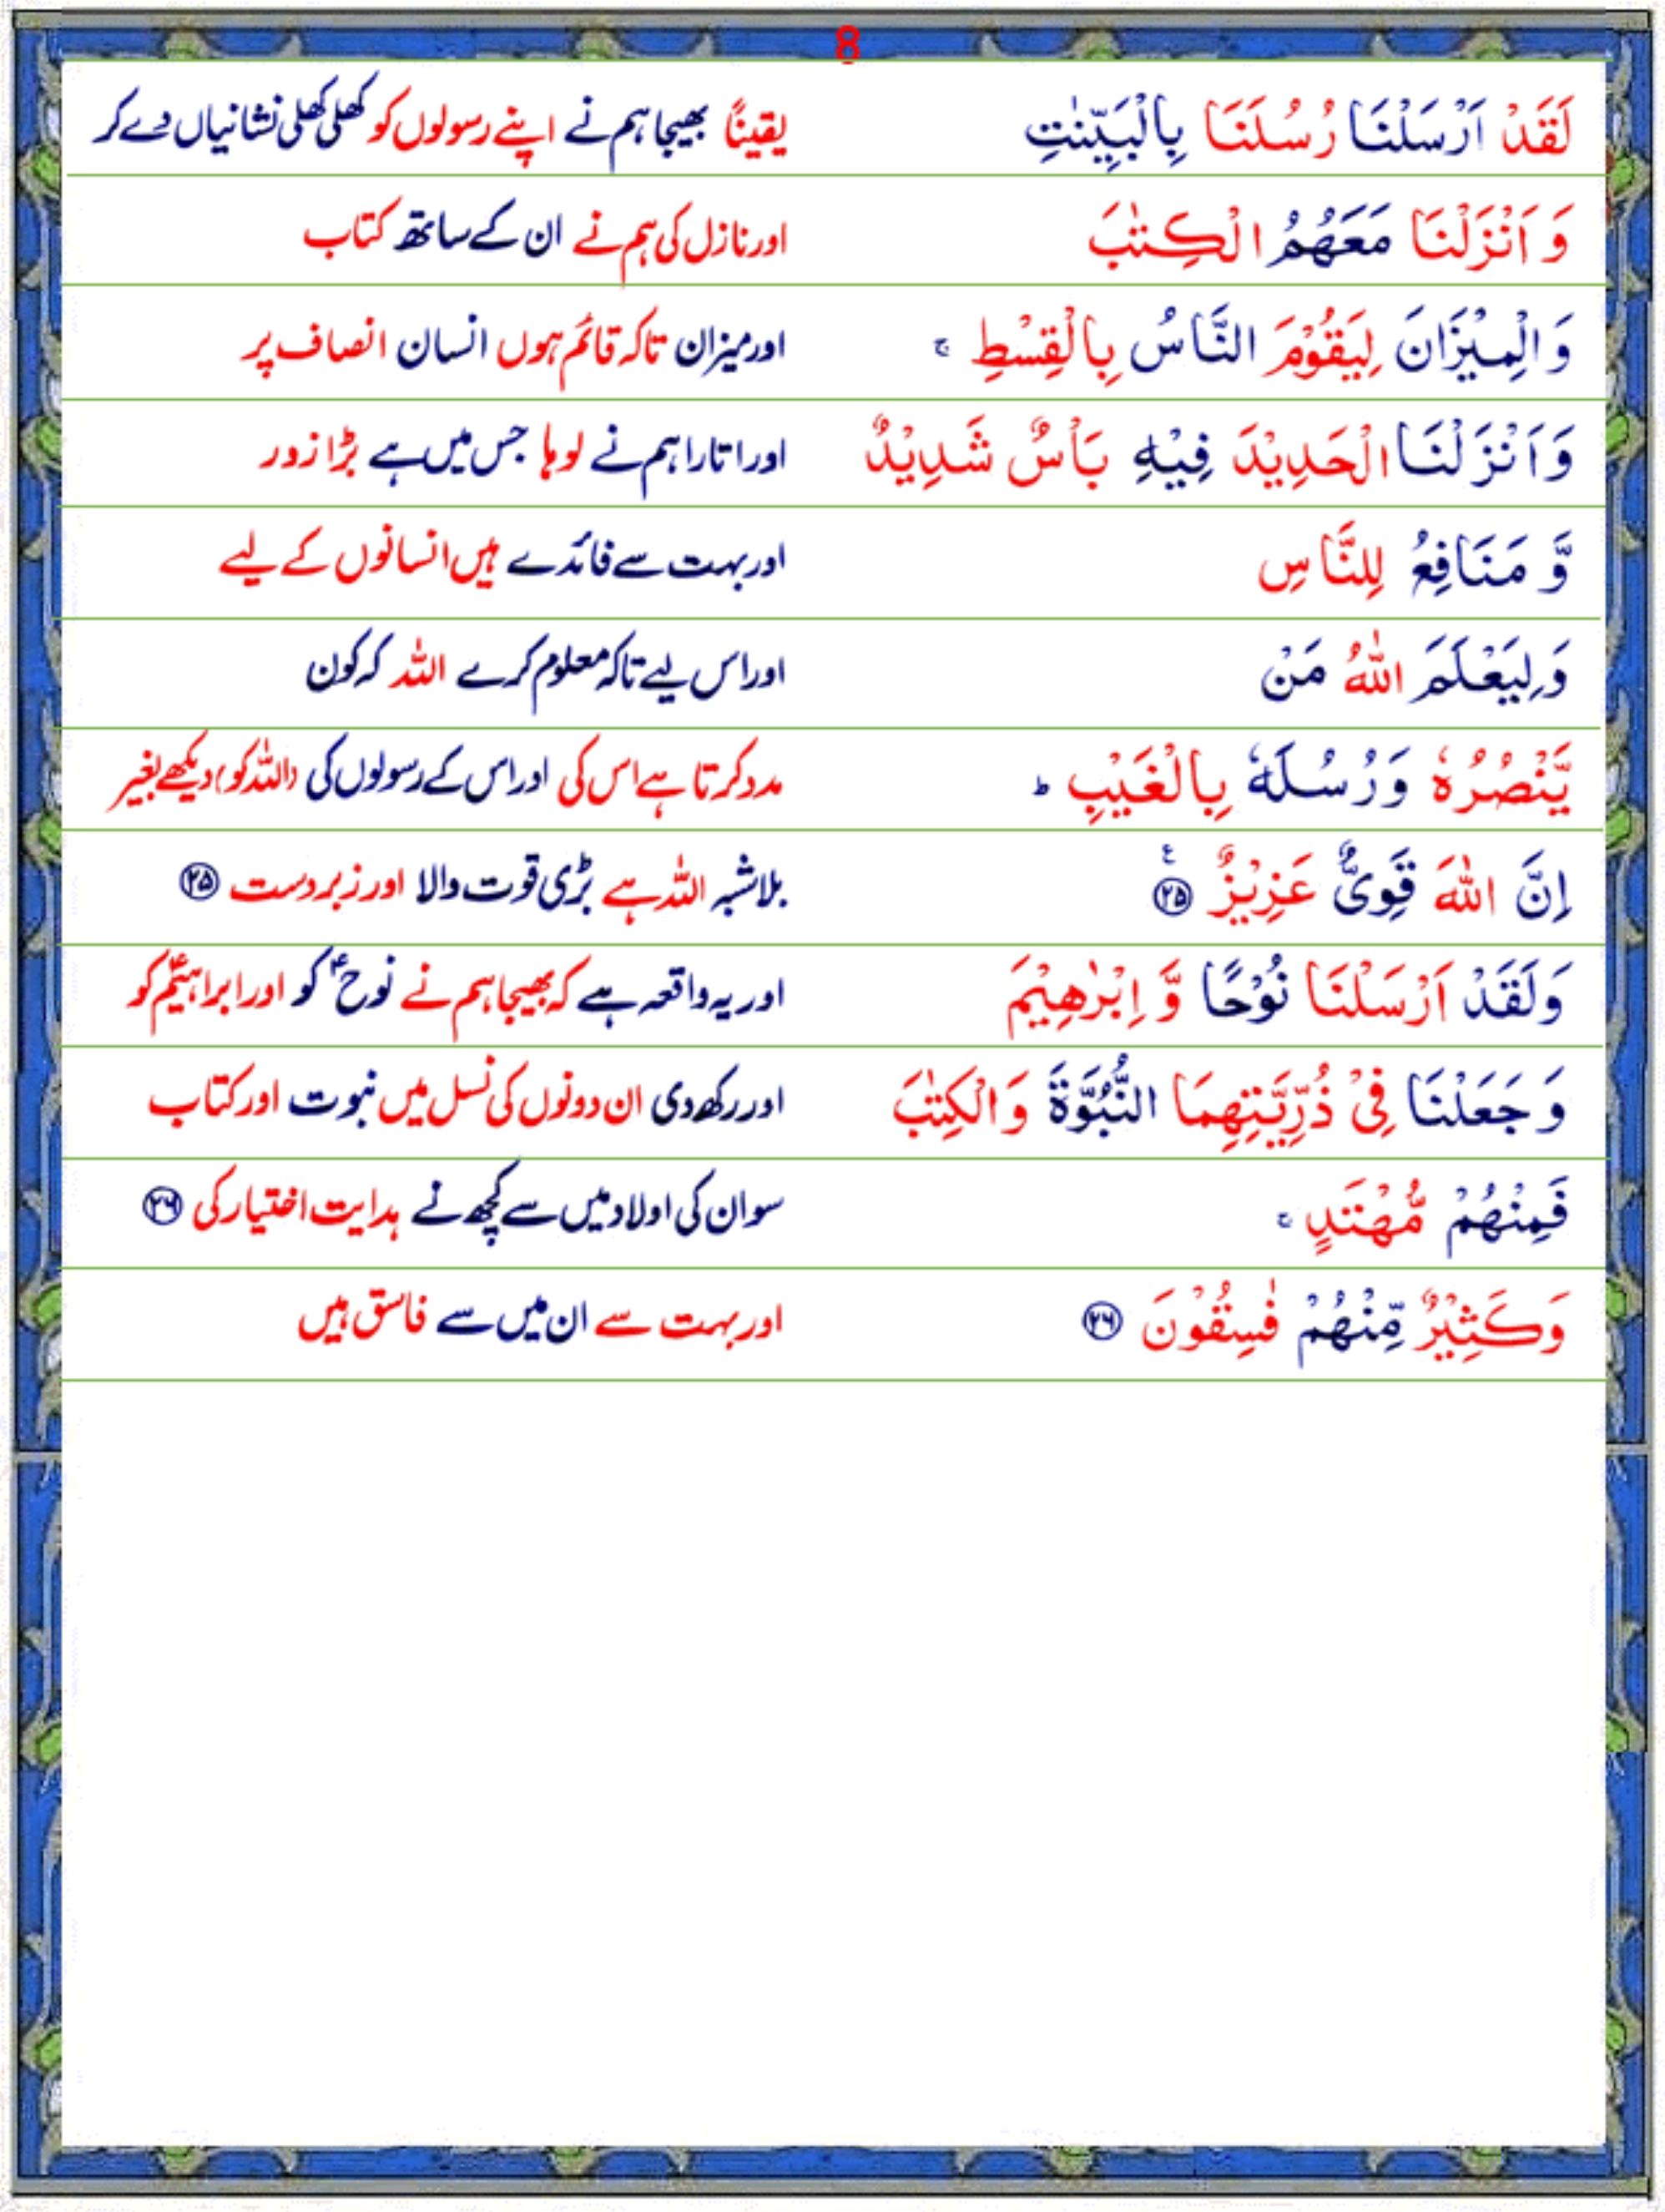 8
لَقَدْ اَرْسَلْنَا رُسُلَنَا بِالْبَيِّنٰتِ یقیناً بھیجا ہم نے اپنے رسولوں کو کھلی کھلی نشانیاں دے کر
وَ اَنْزَلْنَا مَعَهُمُ الْكِتٰبَ اور نازل کی ہم نے ان کے ساتھ کتاب
وَ الْمِيْزَانَ لِيَقُوْمَ النَّاسُ بِالْقِسْطِ ۚ اور میزان تاکہ قائم ہوں انسان انصاف پر
وَ اَنْزَلْنَا الْحَدِيْدَ فِيْهِ بَاْسٌ شَدِيْدٌ اور اتارا ہم نے لوہا جس میں ہے بڑا زور
وَّ مَنَافِعُ لِلنَّاسِ اور بہت سے فائدے ہیں انسانوں کے لیے
وَ لِيَعْلَمَ اللّٰهُ مَنْ اور اس لیے تاکہ معلوم کرے اللہ کہ کون
يَّنْصُرُهٗ وَ رُسُلَهٗ بِالْغَيْبِ ؕ مدد کرتا ہے اس کی اور اس کے رسولوں کی (اللہ کو) دیکھے بغیر
اِنَّ اللّٰهَ قَوِىٌّ عَزِيْزٌ ۧ ﴿۲۵﴾ بلاشبہ اللہ ہے بڑی قوت والا اور زبردست ﴿۲۵﴾
وَلَقَدْ اَرْسَلْنَا نُوْحًا وَّ اِبْرٰهِيْمَ اور یہ واقعہ ہے کہ بھیجا ہم نے نوحؑ کو اور ابراہیمؑ کو
وَ جَعَلْنَا فِىْ ذُرِّيَّتِهِمَا النُّبُوَّةَ وَ الْكِتٰبَ اور رکھ دی ان دونوں کی نسل میں نبوت اور کتاب
فَمِنْهُمْ مُّهْتَدٍ ۚ سو ان کی اولاد میں سے کچھ نے ہدایت اختیار کی ﴿۲۶﴾
وَ كَثِيْرٌ مِّنْهُمْ فٰسِقُوْنَ ﴿۲۶﴾ اور بہت سے ان میں سے فاسق ہیں